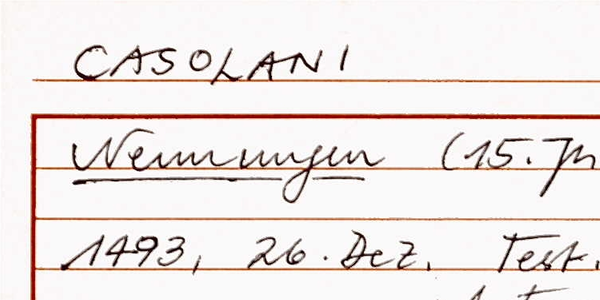 CASOLANI
Nennungen (15. Jh
1493, 26. Dez. Test.